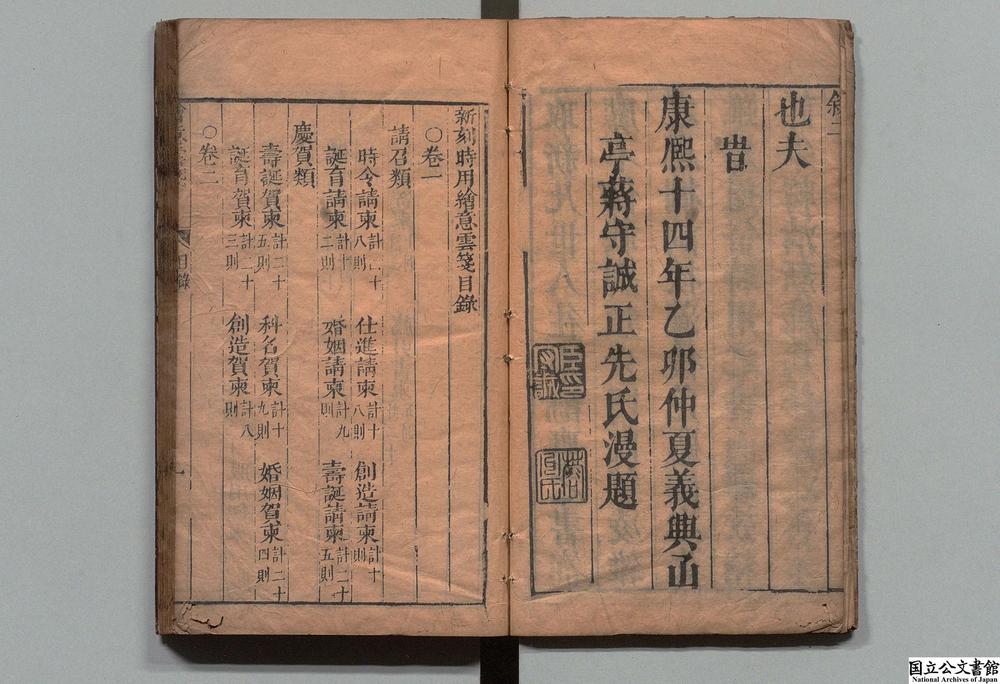 敘二
也夫
旹
康熙十四年乙卯仲夏義興函
亭蔣守誠正先氏漫題
新刻時用繪意雲箋目錄
○卷一
請召類
時令請柬計二十八則　仕進請柬計十八則　創造請柬計十則
誕育請柬計十二則　婚姻請柬計九則　壽誕請柬計二十五則
慶賀類
壽誕賀柬計二十五則　科名賀柬計十九則　婚姻賀柬計二十四則
誕育賀柬計二十三則　創造賀柬計八則
○卷二
目錄
国立公文書館
National Archives of Japan